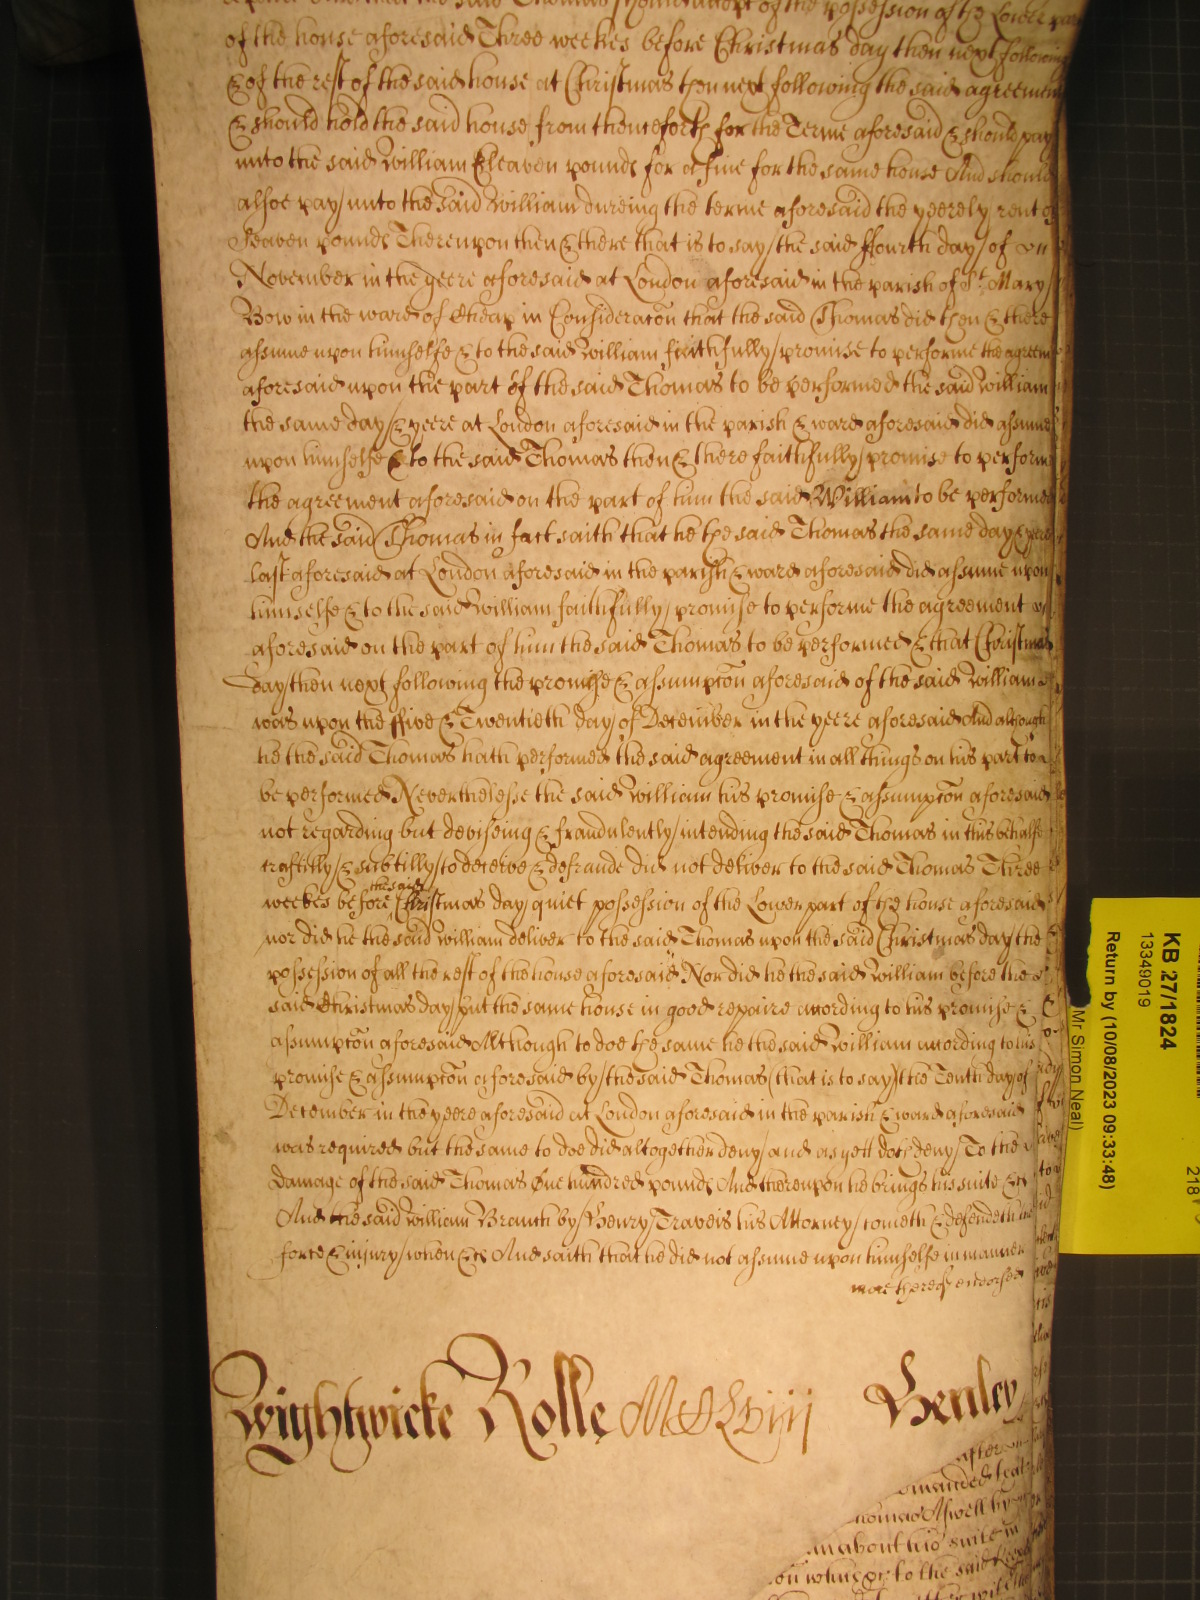 the said Thomas should accept of the possession of the Lower part
of the house aforesaid Three weekes before Christmas day then next following
& of the rest of the said house at Christmas then next following the said agreement
& should hold the said house from thenceforth for the Terme aforesaid & should pay
unto the said William Eleaven pounds for a fine for the same house And should
alsoe pay unto the said William dureing the terme aforesaid the yeerely rent of
Seaven pounds Thereupon then & there that is to say the said ffourth day of
November in the yeere aforesaid at London aforesaid in the parish of St. Mary
Bow in the ward of Cheap in Consideracon that the said Thomas did then & there
assume upon himselfe & to the said William faithfully promise to performe the agreem
aforesaid upon the part of the said Thomas to be performed the said William
the same day & yeere at London aforesaid in the parish & ward aforesaid did assume
upon himselfe & to the said Thomas then & there faithfully promise to perform
the agreement aforesaid on the part of him the said William to be performed
And the said Thomas in fact saith that he the said Thomas the same day & yeere
last aforesaid at London aforesaid in the parish & ward aforesaid did assume upon
himselfe & to the said William faithfully promise to performe the agreement
aforesaid on the part of him the said Thomas to be performed & that Christmas
day then next following the promise & assumpcon aforesaid of the said William
was upon the ffive & Twentieth day of December in the yeere aforesaid And although
he the said Thomas hath performed the said agreement in all things on his part to
be performed Neverthelesse the said William his promise & assumpcon aforesaid
not regarding but deviseing & fraudulently intending the said Thomas in this behalfe
craftily & subtilly to deceive & defraude did not deliver to the said Thomas Three
weekes before the said Christmas day quiet possession of the Lower part of the house aforesaid
nor did he the said William deliver to the said Thomas upon the said Christmas day the
possession of all the rest of the house aforesaid Nor did he the said William before the
said Christmas day put the same house in good repaire according to his promise &
assumpcon aforesaid Although to doe the same he the said William according to his
promise & assumpcon aforesaid by the said Thomas (that is to say) the Tenth day of
December in the yeere aforesaid at London aforesaid in the parish & ward aforesaid
was required but the same to doe did altogether deny and as yett doth deny To the
damage of the said Thomas One hundred pounds And thereupon he brings his suite &c
And the said William Branch by Henry Traveis his Attorney cometh & defendeth the
force & injury when &c And saith that he did not assume upon himselfe in manner
more thereof endorsed
Wightwicke Rolle MDLviij Henley
after
comanded
Thomas Aswell by
in about his suite in
on witnes to the said
KB 27/1824
13349019
Return by (10/08/2023 09:33:48)
Mr Simon Neal)
218